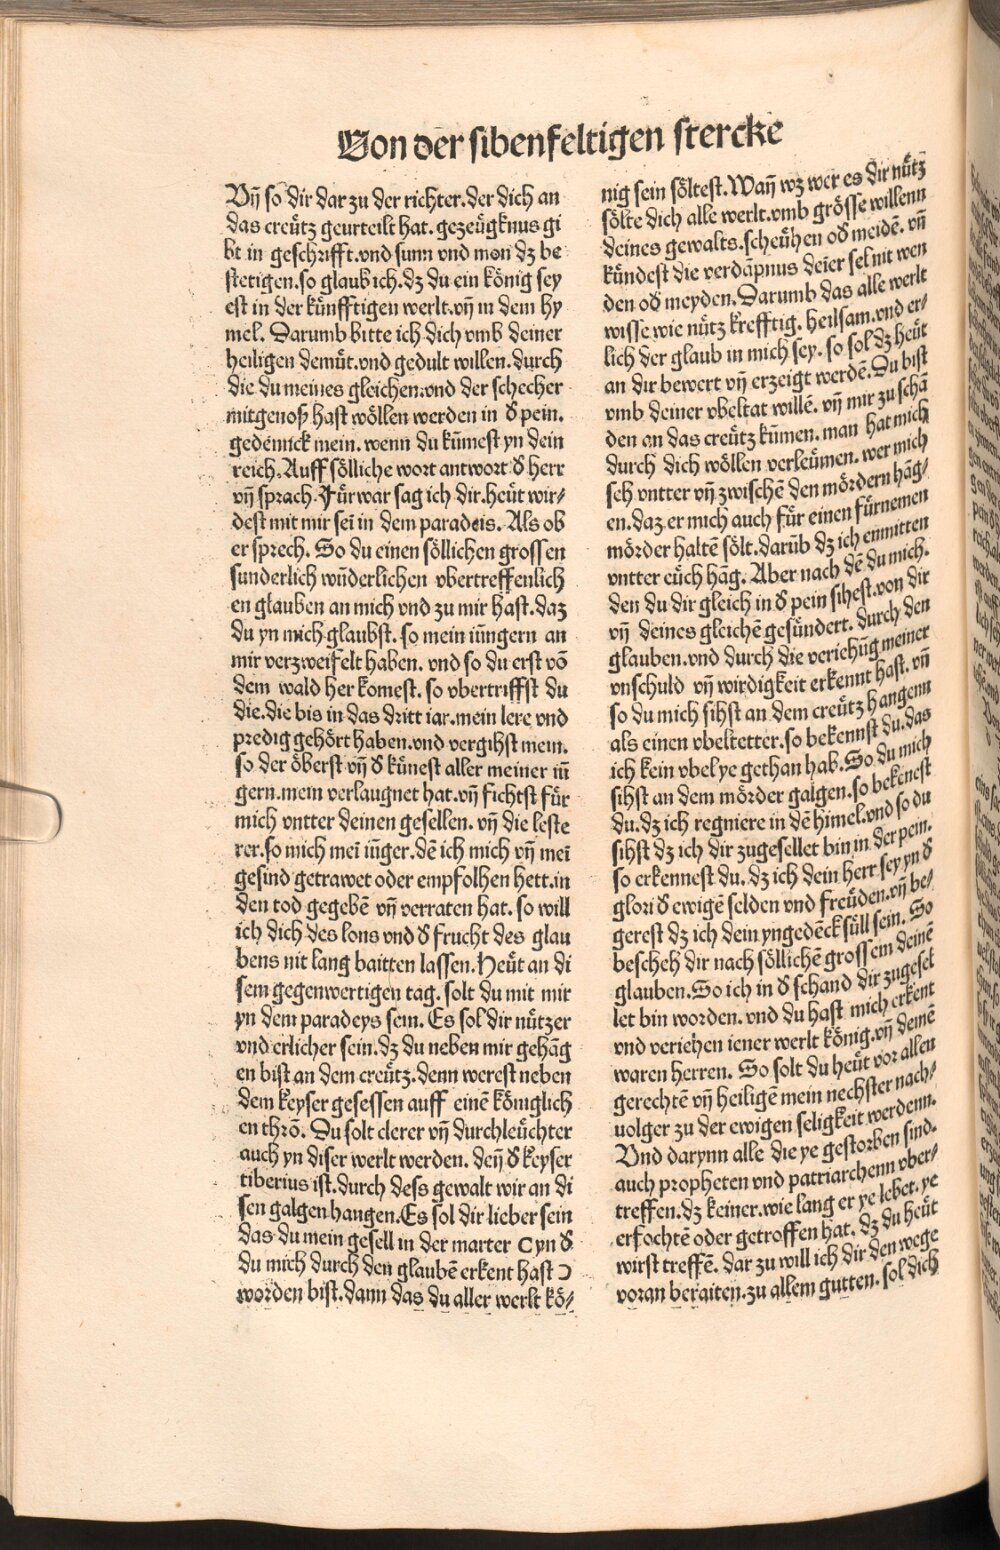 Von der sibenfeltigen stercke
Vñ so dir dar zu der richter.der dich an
das creütz geurteilt hat. gezeügknus gi
bt in geschrifft.vnd sunn vnd mon dz be
stetigen.so glaub ich.dz du ein könig sey
est in der künfftigen werlt.vñ in dem hy
mel. Darumb bitte ich dich vmb deiner
heiligen demüt.vnd gedult willen.durch
die du meines gleichen.vnd der schecher
mitgenoß hast wöllen werden in d pein.
gedennck mein. wenn du kümest yn dein
reich.Auff sölliche wort antwort d herr
vñ sprach.Fürwar sag ich dir.heüt wir/
dest mit mir sei in dem paradeis. Als ob
er sprech. So du einen söllichen grossen
sunderlich wũderlichen vbertreffenlich
en glauben an mich vnd zu mir hast.daz
du yn mich glaubst. so mein iũngern an
mir verzweifelt haben. vnd so du erst võ
dem wald her komest. so vbertriffst du
die.die bis in das dritt iar.mein lere vnd
predig gehört haben.vnd vergihst mein.
so der öberst vñ d künest aller meiner iũ
gern.mein verlaugnet hat.vñ fichtst für
mich vntter deinen gesellen. vñ die leste
rer.so mich mei iũger.dē ich mich vñ mei
gesind getrawet oder empfolhen hett.in
den tod gegebē vñ verraten hat. so will
ich dich des lons vnd d frucht des glau
bens nit lang baitten lassen.Heüt an di
sem gegenwertigen tag. solt du mit mir
yn dem paradeys sein. Es sol dir nützer
vnd erlicher sein.dz du neben mir gehãg
en bist an dem creütz.denn werest neben
dem keyser gesessen auff einē königlich
en thrõ. Du solt clerer vñ durchleüchter
auch yn diser werlt werden. deñ d keyser
tiberius ist.durch dess gewalt wir an di
sen galgen hangen.Es sol dir lieber sein
das du mein gesell in der marter (yn d
du mich durch den glaubē erkent hast )
worden bist.dann das du aller werlt kö/
nig sein söltest.Wañ wz wer es dir nütz
sölte dich alle werlt.vmb grösse willenn
deines gewalts.scheühen od meidē. vñ
kündest die verdãpnus deier sel nit wen
den od meyden.Darumb das alle werlt
wisse wie nütz krefftig. heilsam.vnd er/
lich der glaub in mich sey. so sol dz heüt
an dir bewert vñ erzeigt werdē.Du bist
vmb deiner vbeltat willē. vñ mir zu schã
den an das creütz kũmen. man hat mich
durch dich wöllen verleümen. wer mich
seh vntter vñ zwischē den mördern hãg/
en.daz er mich auch für einen fürnemen
mörder haltē sölt.darũb dz ich enmitten
vntter eüch hãg. Aber nach dē du mich.
den du dir gleich in d pein sihest.von dir
vñ deines gleichē gesündert. durch den
glauben.vnd durch die veriehũg meiner
vnschuld vñ wirdigkeit erkennt hast. vñ
so du mich sihst an dem creütz hangenn
als einen vbeltetter.so bekennst du.das
ich kein vbel ye gethan hab.So du mich
sihst an dem mörder galgen.so bekenest
du.dz ich regniere in dē himel.vnd so du
sihst dz ich dir zugesellet bin in der pein.
so erkennest du. dz ich dein herr sey yn d
glori d ewigē selden vnd freüden.vñ be/
gerest dz ich dein yngedēck süll sein. So
bescheh dir nach söllichē grossem deinē
glauben.So ich in d schand dir zugesel
let bin worden. vnd du hast mich erkent
vnd veriehen iener werlt könig.vñ deinē
waren herren. So solt du heüt vor allen
gerechtē vñ heiligē mein nechster nach/
uolger zu der ewigen seligkeit werdenn.
Vnd darynn alle die ye gestorben sind.
auch propheten vnd patriarchenn vber/
treffen.dz keiner.wie lang er ye lebet. ye
erfochtē oder getroffen hat. dz du heüt
wirst treffē. dar zu will ich dir den wege
voran beraiten.zu allem gutten. sol dich